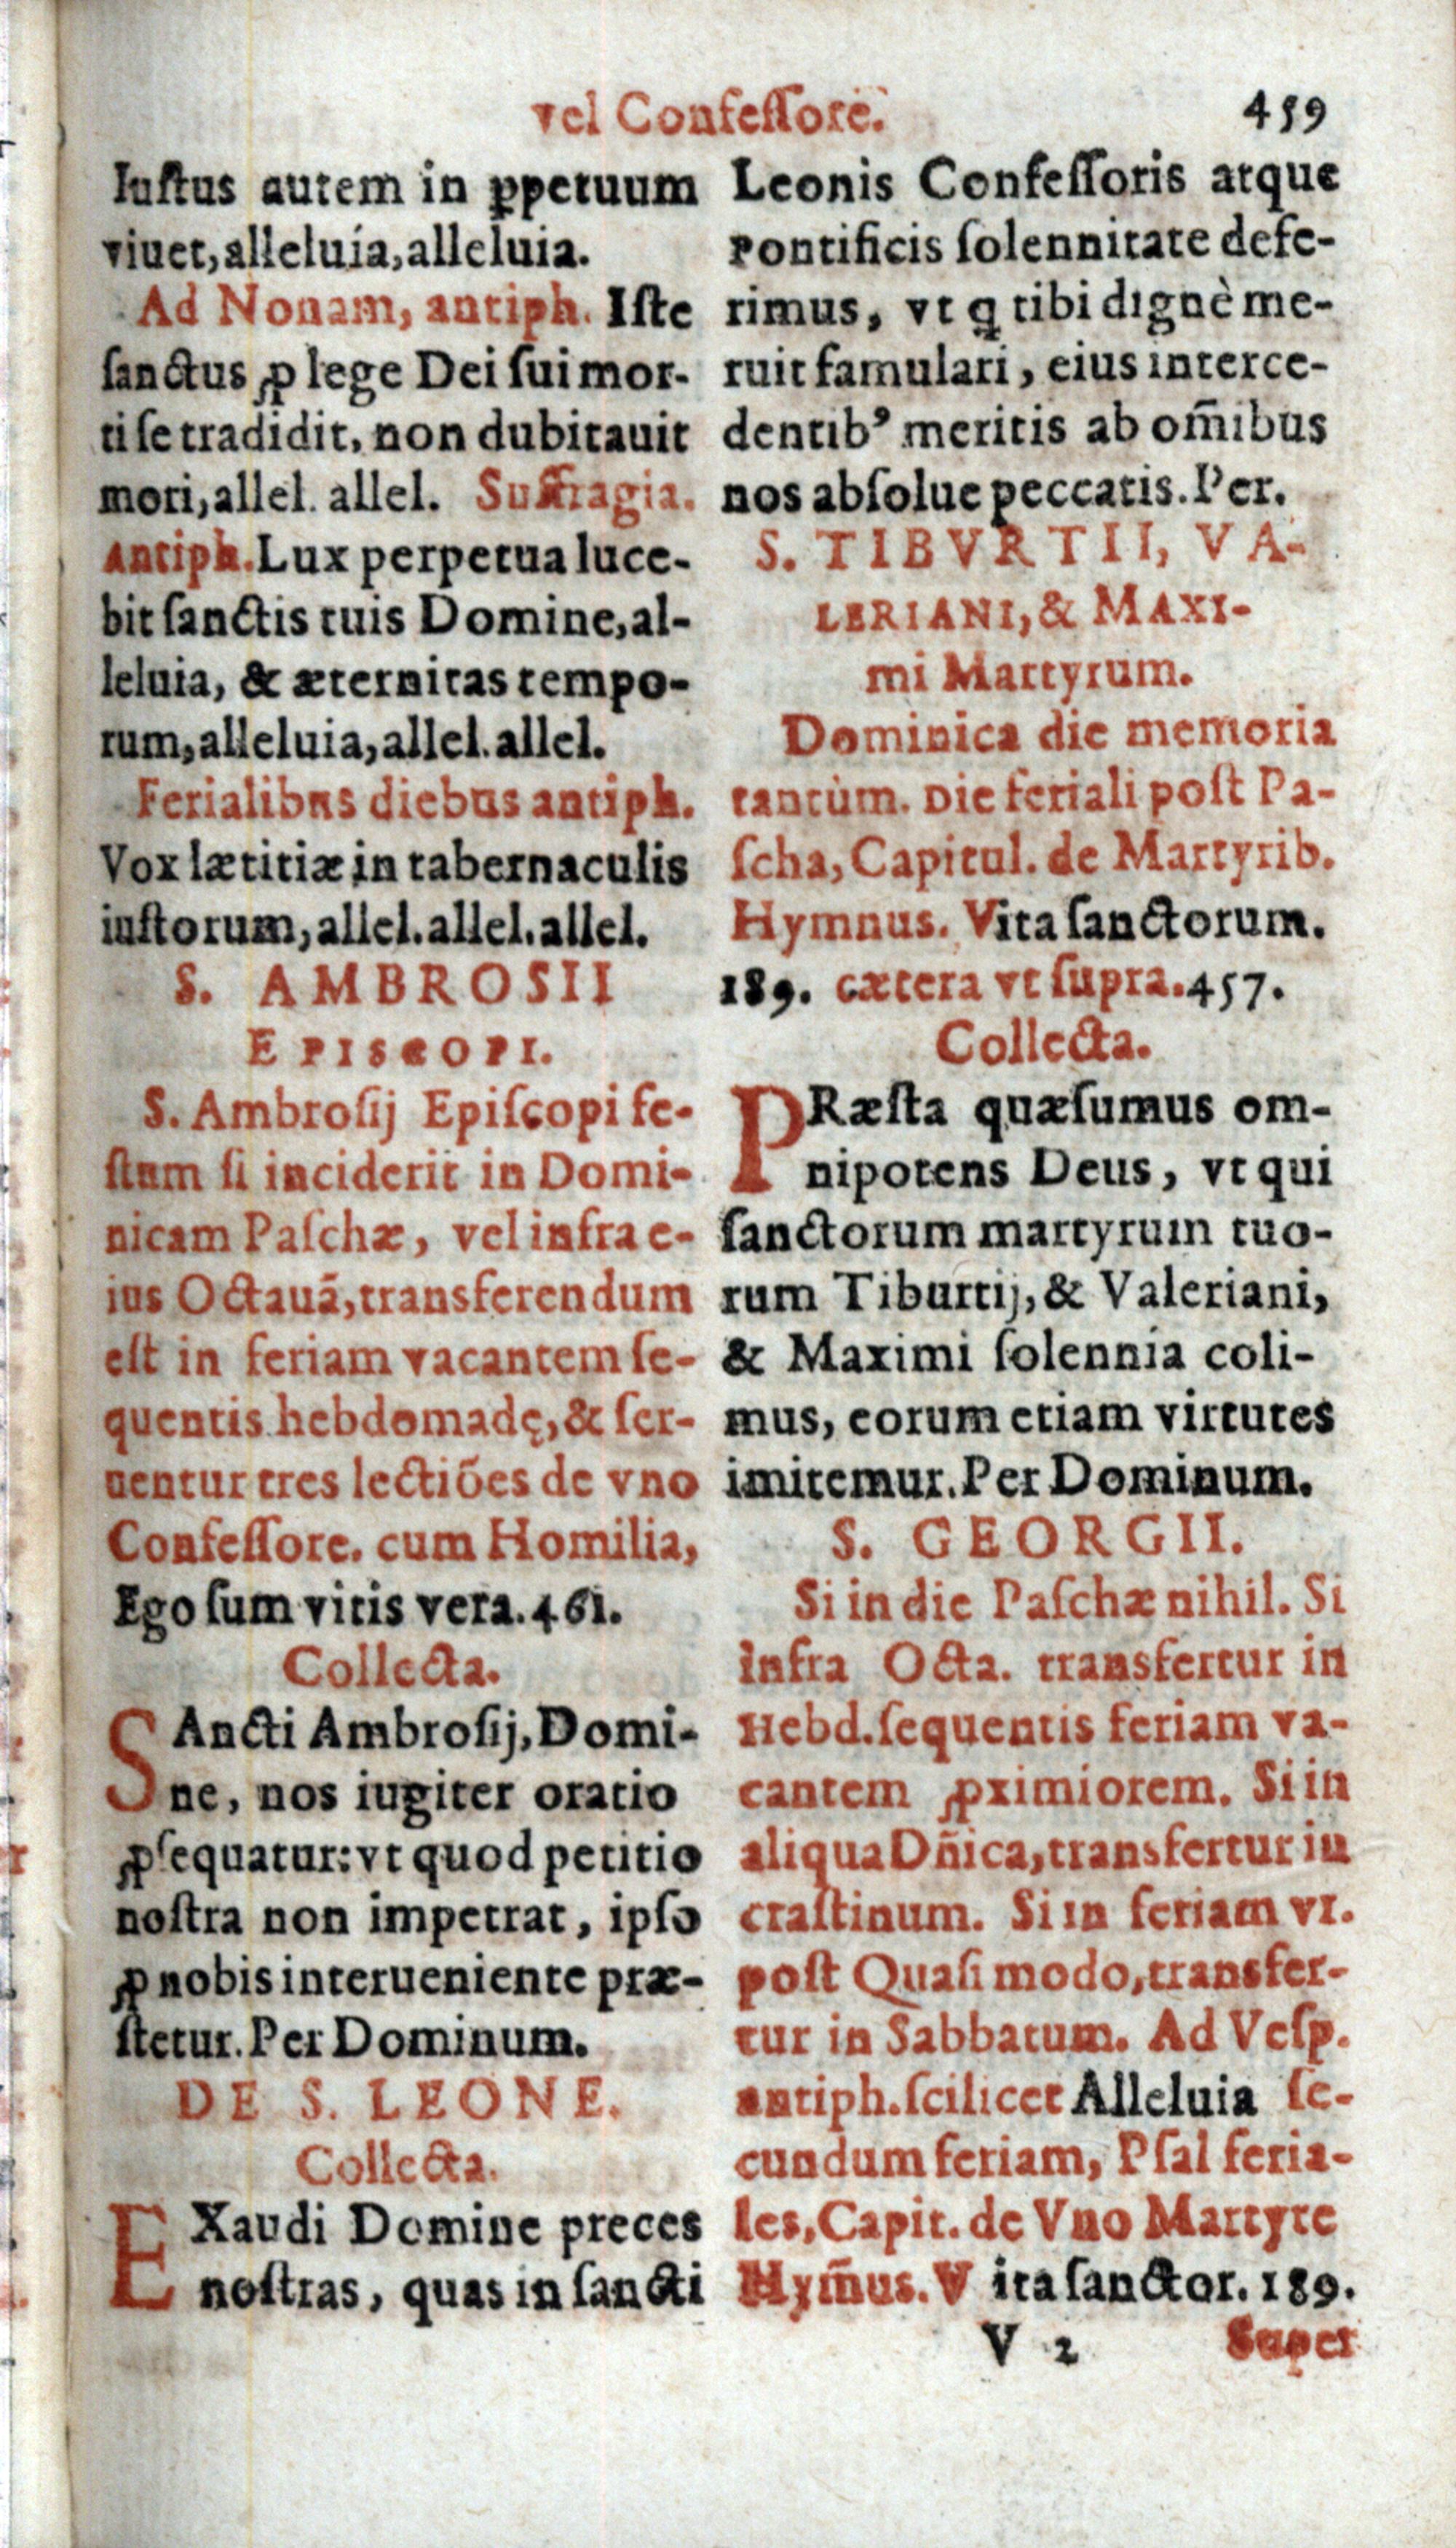 vel Confeſſore. 459
Iuſtus autem in ꝑpetuum
viuet, alleluia, alleluia.
Ad Nonam, antiph. Iſte
ſanctus ꝓ lege Dei ſui mor-
ti ſe tradidit, non dubitauit
mori, allel. allel. Suffragia.
Antiph. Lux perpetua luce-
bit ſanctis tuis Domine, al-
leluia, & æternitas tempo-
rum, alleluia, allel. allel.
Ferialibus diebus antiph.
Vox lætitiæ in tabernaculis
iuſtorum, allel. allel. allel.
S. AMBROSII
EPISCOPI.
S. Ambroſij Epiſcopi fe-
ſtum ſi inciderit in Domi-
nicam Paſchæ, vel infra e-
ius Octauã, transferendum
eſt in feriam vacantem ſe-
quentis hebdomadę, & ſer-
uentur tres lectiões de vno
Confeſſore. cum Homilia,
Ego ſum vitis vera. 461.
Collecta.
SAncti Ambroſij, Domi-
ne, nos iugiter oratio
ꝓſequatur: vt quod petitio
noſtra non impetrat, ipſo
ꝓ nobis interueniente præ-
ſtetur. Per Dominum.
DE S. LEONE.
Collecta.
EXaudi Domine preces
noſtras, quas in ſancti
Leonis Confeſſoris atque
Pontificis ſolennitate defe-
rimus, vt q̃ tibi dignè me-
ruit famulari, eius interce-
dentibꝰ meritis ab om̃ibus
nos abſolue peccatis. Per.
S. TIBVRTII, VA-
LERIANI, & MAXI-
mi Martyrum.
Dominica die memoria
tantùm. Die feriali poſt Pa-
ſcha, Capitul. de Martyrib.
Hymnus. Vita ſanctorum.
189. cætera vt ſupra. 457.
Collecta.
PRæſta quæſumus om-
nipotens Deus, vt qui
ſanctorum martyrum tuo-
rum Tiburtij, & Valeriani,
& Maximi ſolennia coli-
mus, eorum etiam virtutes
imitemur. Per Dominum.
S. GEORGII.
Si in die Paſchæ nihil. Si
infra Octa. transfertur in
Hebd. ſequentis feriam va-
cantem ꝓximiorem. Si in
aliqua Dñica, transfertur in
craſtinum. Si in feriam VI.
poſt Quaſi modo, transfer-
tur in Sabbatum. Ad Veſp.
antiph. ſcilicet Alleluia ſe-
cundum feriam, Pſal feria-
les, Capit. de Vno Martyre
Hym̃us. Vita ſanctor. 189.
V 2 Super